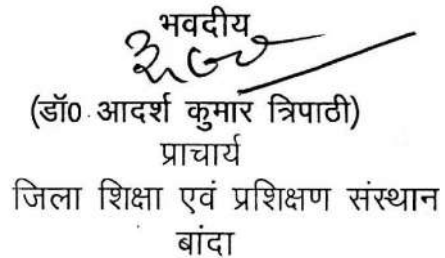 भवदीय
(डॉ0 आदर्श कुमार त्रिपाठी)
प्राचार्य
जिला शिक्षा एवं प्रशिक्षण संस्थान
बांदा